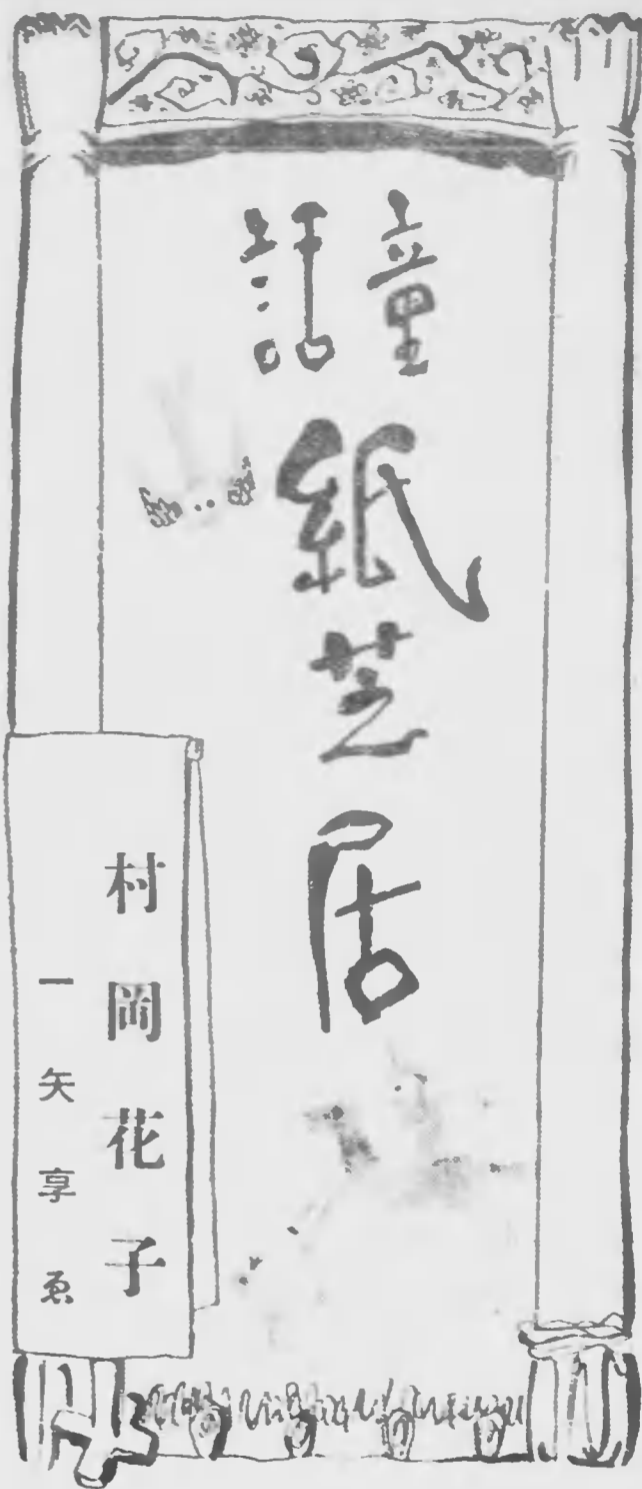 童話
紙芝居
村岡花子
一矢享ゑ